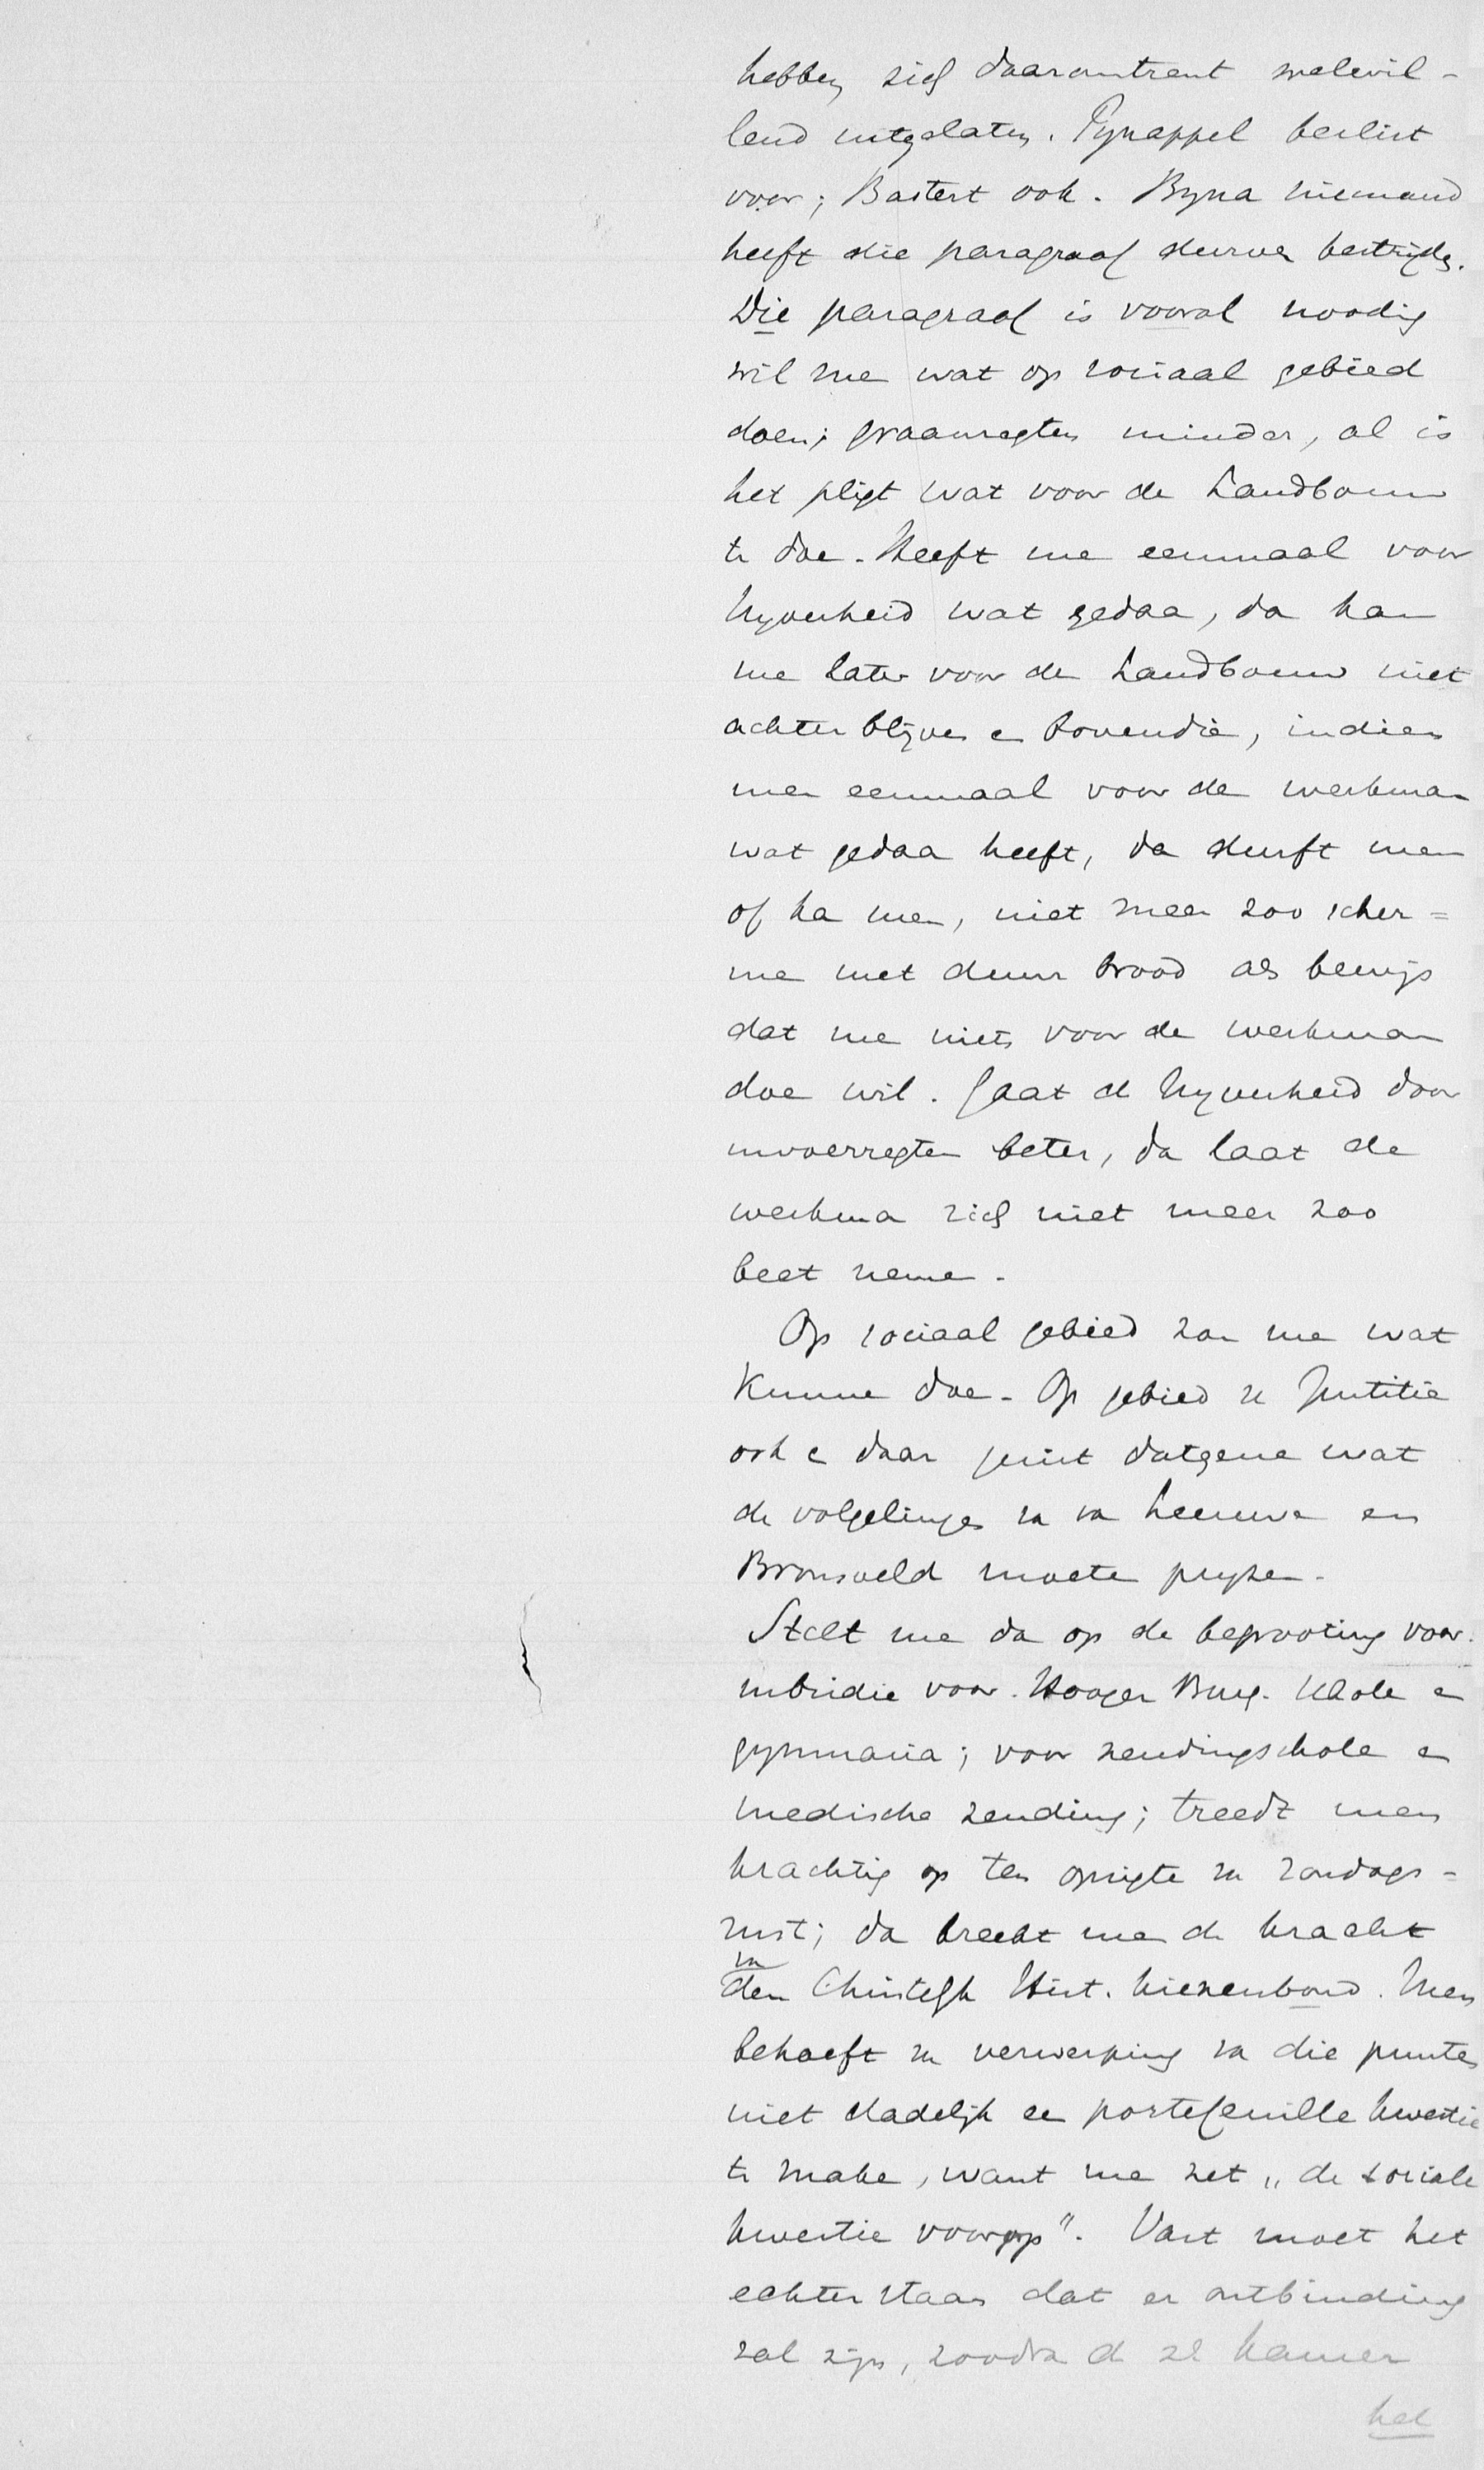 hebben zich daaromtrent welwil-
lend uitgelaten. Pijnappel beslist
voor; Bastert ook. Byna niemand
heeft die paragraaf durven bestrijden.
Die paragraaf is vooral noodig
wil me wat op sociaal gebied
doen; graanregten minder, al is
het pligt wat voor de Landbouw
te doe. Heeft me eenmaal voor
Nyverheid wat gedaa, da kan
me later voor de Landbouw niet
achter blijven e bovendie, indien
men eenmaal voor de werkman
wat gedaa heeft, da durft men
of ka men, niet meer zoo scher=
me met duur brood als bewijs
dat me niets voor de werkman
doe wil. Gaat de Nyverheid door
invoerregten beter, da laat de
werkma zich niet meer zoo
beet neme.
Op sociaal gebied zou me wat
kunne doe. Op gebied v Justitie
ook e daar juist datgene wat
de volgelingen va va Leeuwe en
Bronsveld moete pryzen.
Stelt me da op de begrooting voor
subsidie voor Hooger Burg. Schole e
gymnasia; voor zendingschole e
medische zending; treedt men
krachtig op ten opzigte va zondags=
rust; da breekt me de kracht
va
den Christelijk Hist. Kiezenbond. Men
behoeft va verwerping va die punten
niet dadelijk ee portefeuille kwestie
te make, want me zet „de sociale
kwestie voorop". Vast moet het
echter staan dat er ontbinding
zal zijn, zoodra de 2e Kamer
het